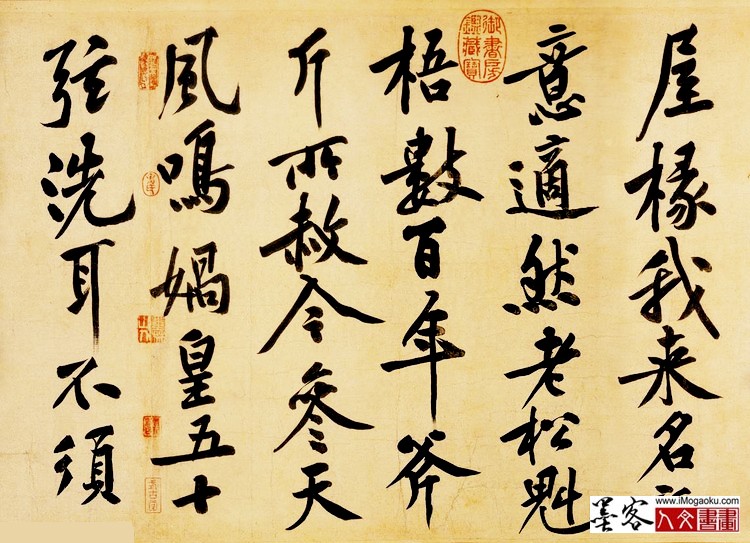 屋椽我来名
意適然老松魁
梧數百年斧
斤所赦今參天
風鳴媧皇五十
弦洗耳不須
御書房
鑑藏寶
墨客
www.iMogaoku.com
人文書畫